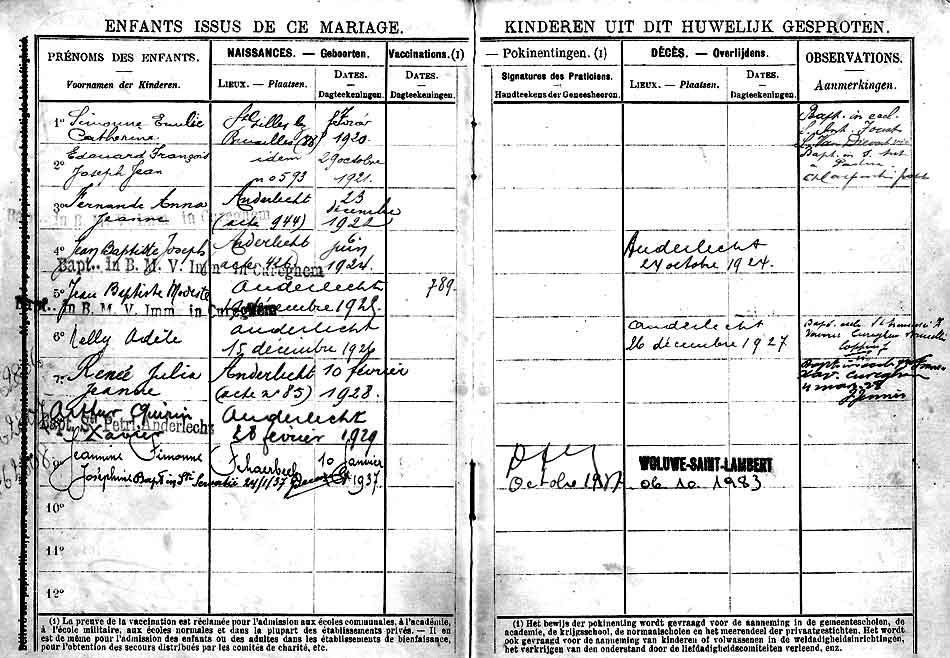 ENFANTS ISSUS DE CE MARIAGE.
PRÉNOMS DES ENFANTS.
Voornamen der Kinderen.
NAISSANCES. — Geboorten.
LIEUX. — Plaatsen.
DATES.
Dagteekeningen.
Vaccinations.(1)
DATES.
Dagteekeningen.
1° Simonne Emilie
Catherine
St Gilles lez
Bruxelles
1920.
2° Edouard François
Joseph Jean
idem
n° 593
29 octobre
1921.
3° Fernande Anna
Jeanne
Anderlecht
(acte 944)
23
décembre
1922
in Cureghem
4° Jean Baptiste Joseph
Anderlecht
acte 426
juin
1924.
Bapt.. in B. M. V. Imm. in Cureghem
5° Jean Baptiste Modeste
Anderlecht
décembre 1925.
789.
in B. M. V. Imm. in Cureghem
6° Nelly Adèle
Anderlecht
15 décembre 1926
7° Renée Julia
Jeanne
Anderlecht
(acte n° 85)
10 février
1928
Arthur Quirin
Xavier
Anderlecht
28 février 1929
Bapt. Petri Anderlecht
9° Jeannine Simonne
Joséphine Bapt in Ste 24/1/37
Schaerbeek
10 janvier
1937.
10°
11°
12°
(1) La preuve de la vaccination est réclamée pour l'admission aux écoles communales, à l'académie,
à l'école militaire, aux écoles normales et dans la plupart des établissements privés. — Il en
est de même pour l'admission des enfants ou des adultes dans les établissements de bienfaisance,
pour l'obtention des secours distribués par les comités de charité, etc.
KINDEREN UIT DIT HUWELIJK GESPROTEN.
— Pokinentingen. (1)
Signatures des Praticiens.
Handtrekens der Geneesheeren.
DÉCÈS. — Overlijdens.
LIEUX. — Plaatsen.
DATES.
Dagteekeningen.
OBSERVATIONS.
Aanmerkingen.
Bapt. in eccl.
Bapt. in
Anderlecht
27 octobre 1924.
Anderlecht
26 décembre 1927
Cureghem
Cureghem
4 mars 28
Octobre
WOLUWE-SAINT-LAMBERT
06 10 1983
(1) Het bewijs der pokinenting wordt gevraagd voor de aanneming in de gemeentescholen, de
academie, de krijgsschool, de normaalscholen en het meerendeel der privaatgestichten. Het wordt
ook gevraagd voor de aanneming van kinderen of volwassenen in de weldadigheidsinrichtingen,
het verkrijgen van den onderstand door de liefdadigheidscomiteiten verleend, enz.